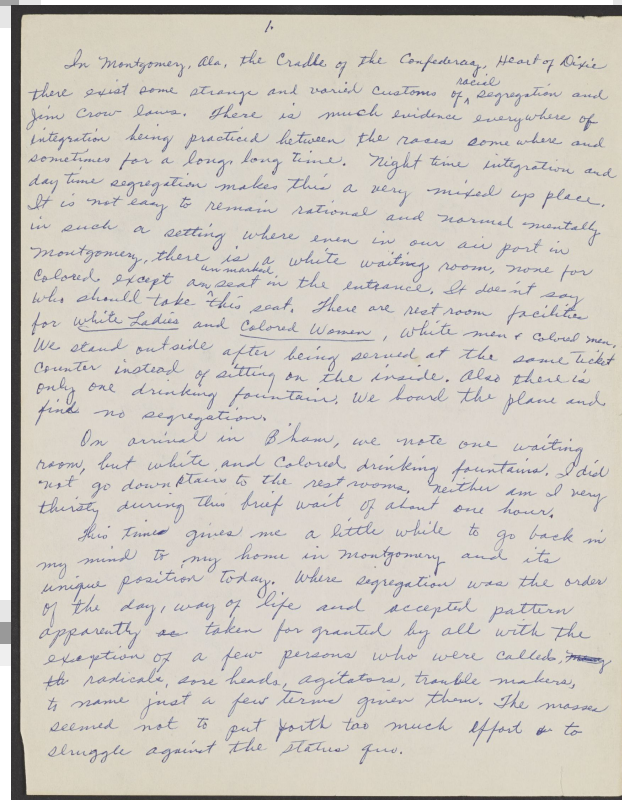 1.
In Montgomery, Ala, the Cradle of the Confederacy, Heart of Dixie
there exist some strange and varied customs of racial segregation and
Jim Crow laws. There is much evidence everywhere of
integration being practiced between the races somewhere and
sometimes for a long, long time. Night time integration and
day time segregation makes this a very mixed up place.
It is not easy to remain rational and normal mentally
in such a setting where even in our air port in
Montgomery, there is a white waiting room, none for
colored except an unmarked seat in the entrance. It doesn't say
who should take this seat. There are rest room facilities
for White Ladies and Colored Women, white men & colored men.
We stand outside after being served at the same ticket
counter instead of sitting on the inside. Also there is
only one drinking fountain. We board the plane and
find no segregation.
On arrival in B'ham, we note one waiting
room, but white and colored drinking fountains. I did
not go downstairs to the rest rooms. Neither am I very
thirsty during this brief wait of about one hour.
This time gives me a little while to go back in
my mind to my home in Montgomery and its
unique position today. Where segregation was the order
of the day, way of life and accepted pattern
apparently as taken for granted by all with the
exception of a few persons who were called, many
th radicals, sore heads, agitators, trouble makers,
to name just a few terms given them. The masses
seemed not to put forth too much effort to
struggle against the status quo.